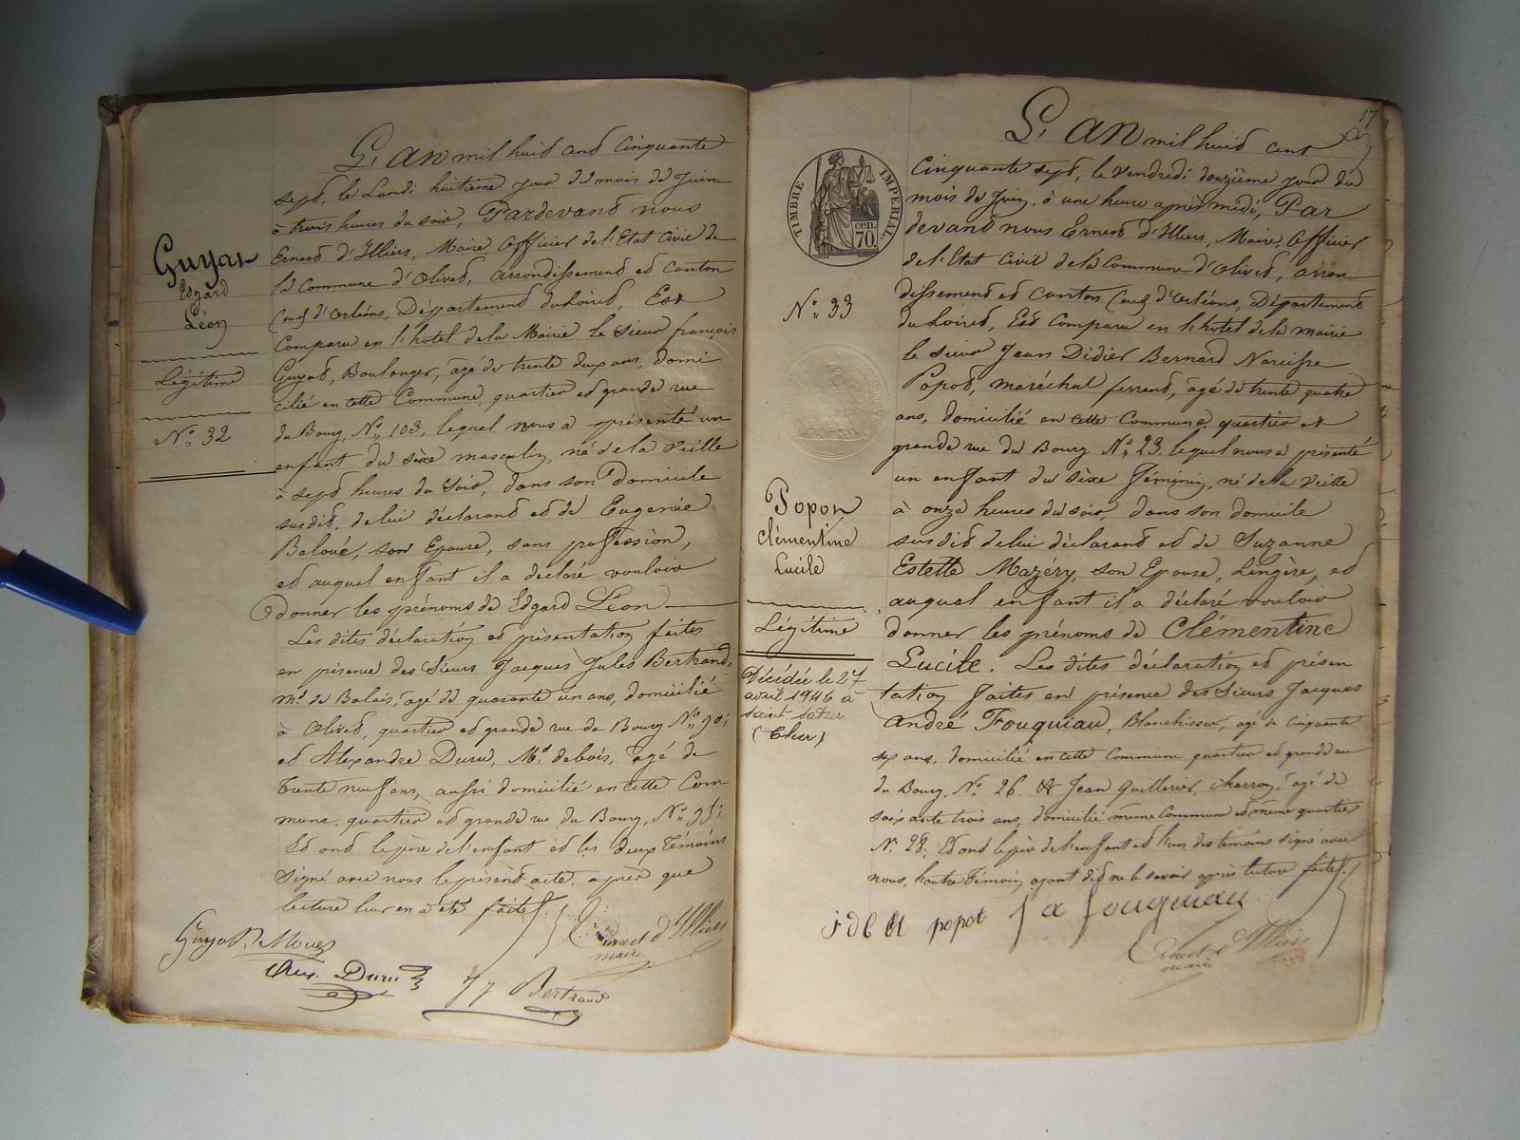 L'AN mil huit cent Cinquante
sept, le Lundi huitième jour du mois de Juin
à trois heures du soir, Pardevant nous
Ernest d'Illiers, Maire Officier de l'Etat Civil de
la Commune d'Olivet, arrondissement et canton
Sud d'Orléans, Département du Loiret, Est
Comparu en l'hôtel de la Mairie le Sieur françois
Guyot, Boulanger, âgé de trente deux ans, domi
cilié en cette Commune, quartier et grande rue
du Bourg, No. 103, lequel nous a présenté un
enfant du sèxe masculin, né de la veille
à sept heures du soir, dans son domicile
susdit, de lui déclarant et de Eugenie
Baloué, son Epouse, sans profession,
et auquel enfant il a déclaré vouloir
donner les prénoms de Edgard Léon
Les dites déclaration et présentation faites
en présence des Sieurs Jacques Jules Bertrand,
Md. de Balais, âgé de quarante un ans, domicilié
à Olivet, quartier et grande rue du Bourg No. 90;
et Alexandre Duru, Md. de bois, âgé de
trente neuf ans, aussi domicilié en cette Com
mune, quartier et grande rue du Bourg, No. 95;
Et ont le père de l'enfant et les deux Témoins
signé avec nous le présent acte, après que
lecture leur en a été faite.
Guyot
Edgard
Léon
Légitime
No. 32
Alex. Duru
JJ Bertrand
Ernest d'Illiers
maire
17
L'AN mil huit cent
Cinquante sept, le vendredi douzième jour du
mois de Juin, à une heure après midi, Par
devant nous Ernest d'Illiers, Maire, Officier
de l'Etat Civil de la Commune d'Olivet, arron
dissement et canton Sud d'Orléans, Département
du Loiret, Est Comparu en l'hôtel de la mairie
le Sieur Jean Didier Bernard Narcisse
Popot, maréchal ferrant, âgé de trente quatre
ans, domicilié en cette Commune, quartier et
grande rue du Bourg No. 23, lequel nous a présenté
un enfant du sèxe féminin, né de la veille
à onze heures du soir, dans son domicile
susdit de lui déclarant et de Suzanne
Estelle Mazéry, son Epouse, Lingère, et
auquel enfant il a déclaré vouloir
donner les prénoms de Clémentine
Lucile. Les dites déclaration et présen
tation faites en présence des Sieurs Jacques
André Fouquiau, Blanchisseur, âgé de cinquante
six ans, domicilié en cette Commune quartier et grande rue
du Bourg, No. 26 et Jean Guillerier, charron, âgé de
soixante trois ans, domicilié même Commune et même quartier
No. 28. Et ont le père de l'enfant et l'un des témoins signé avec
nous, l'autre Témoin ayant dit ne le savoir après lecture faite.
TIMBRE IMPERIAL
70 cen.
No. 33
Popot
Clémentine
Lucile
Légitime
Décédée le 27
avril 1946 à
Saint Satur
(Cher)
popot
j a fouquiau
Ernest d'Illiers
maire